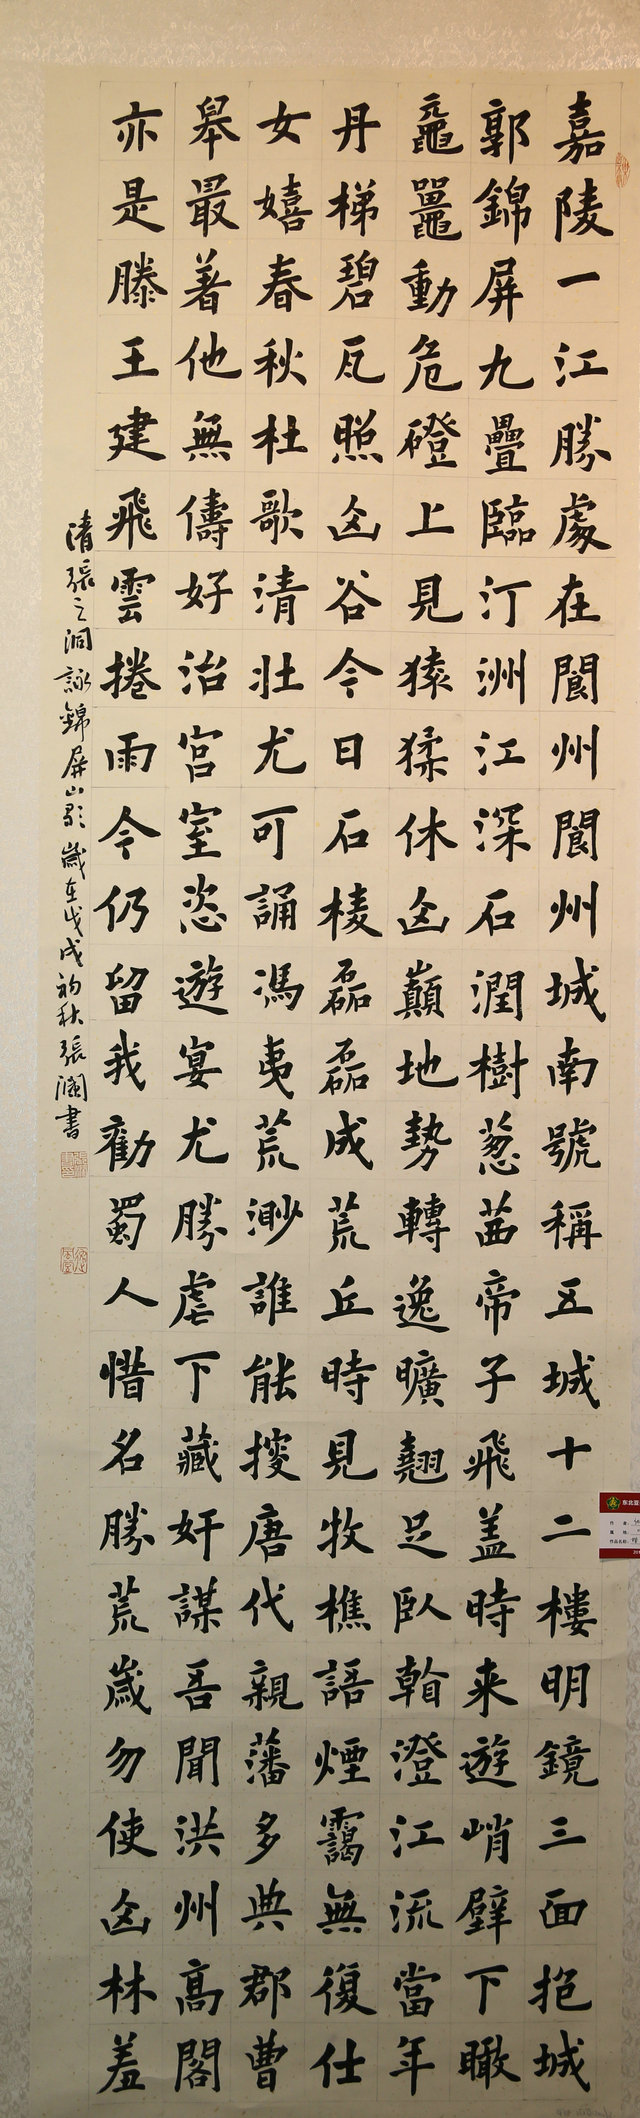 嘉陵一江勝處在閬州閬州城南號稱五城十二樓明鏡三面抱城
郭錦屏九疊臨汀洲江深石潤樹葱茜帝子飛盖時来遊峭壁下瞰
黿鼉動危磴上見猿猱休仚巔地勢轉逸曠翹足臥䡄澄江流當年
丹梯碧瓦照仚谷今日石棱磊磊成荒丘時見牧樵語煙靄無復仕
女嬉春秋杜歌清壯尤可誦馮夷荒渺誰能搜唐代親藩多典郡曹
皋最著他無儔好治宮室恣遊宴尤勝虐下藏奸謀吾聞洪州高閣
亦是滕王建飛雲捲雨今仍留我勸蜀人惜名勝荒歲勿使仚林羞
清張之洞詠錦屏山歌歲在戊戌初秋張瀾書
东北亚
作 者
作品名称